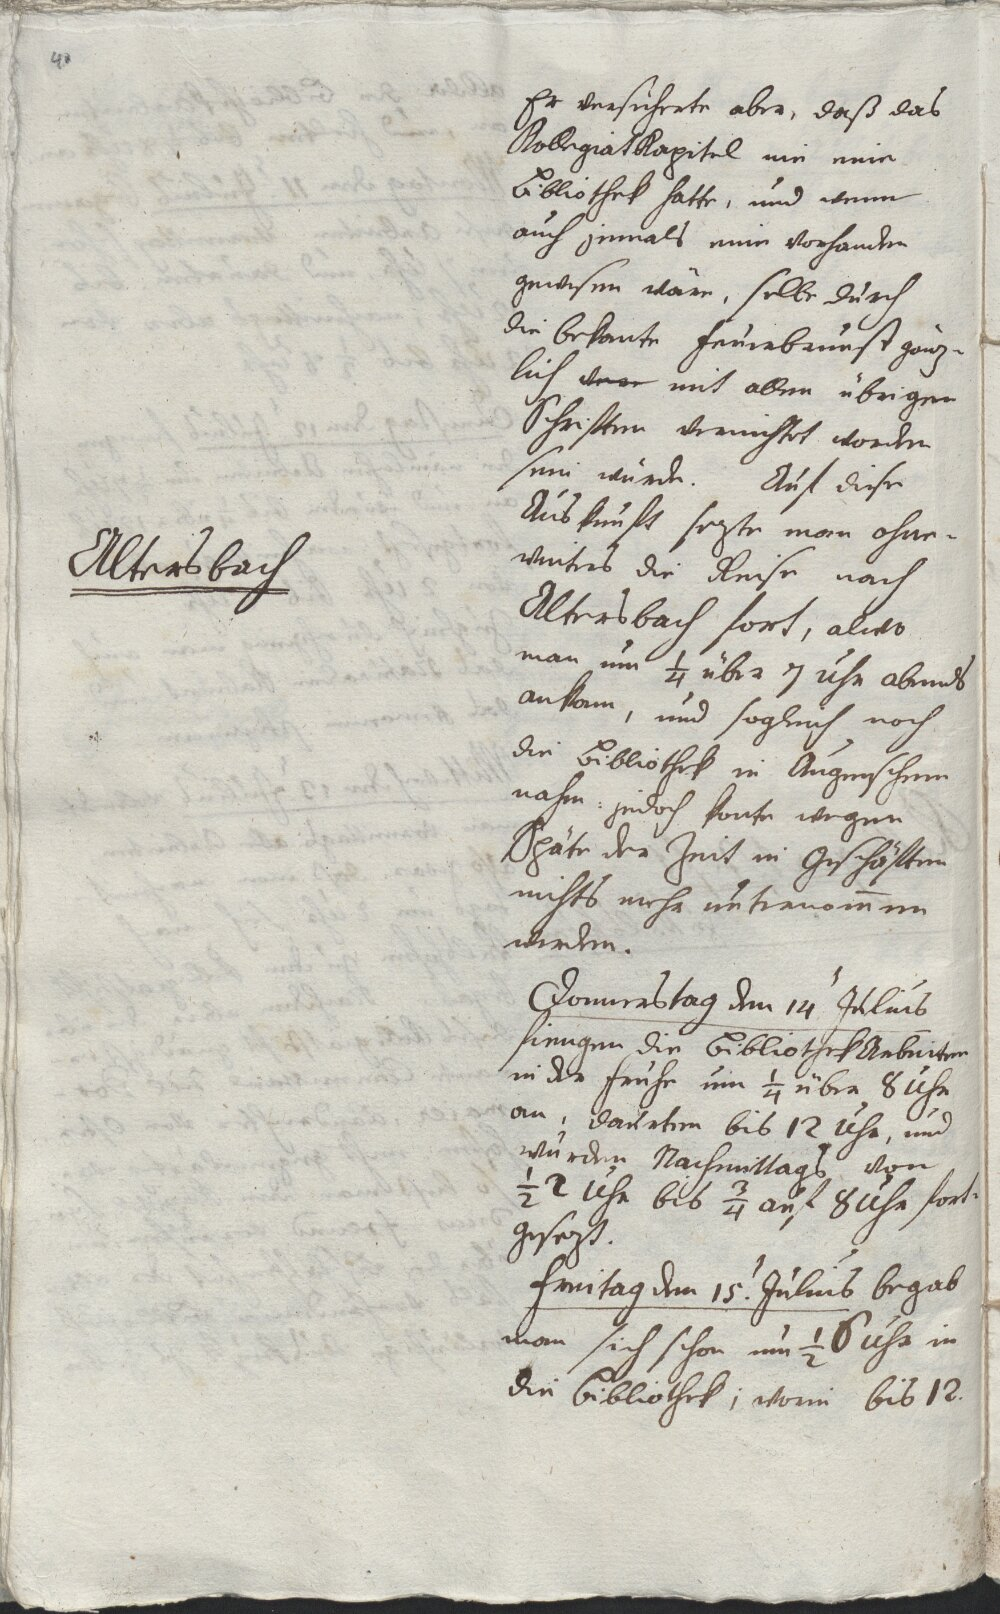 Er versicherte aber, daß das
Kollegiatkapitel nie eine
Bibliothek hatte, und wenn
auch jemals eine vorhanden
gewesen wäre, selbe durch
die bekante Feuersbrunst gänz-
lich mit allen übrigen
Schriften vernichtet worden
sein würde. Auf diese
Auskunft sezte man ohne-
weiters die Reise nach
Altersbach
Altersbach fort, alwo
man um 1/4 über 7 Uhr abends
ankam, und sogleich noch
die Bibliothek in Augenschein
nahm: jedoch konte wegen
Späte der Zeit in Geschäften
nichts mehr unternom̄en
werden.
Donnerstag dem 14 Julius
fiengen die Bibliothek Arbeiten
in der Frühe um 1/4 über 8 Uhr
an, daurten bis 12 Uhr, und
wurden Nachmittags von
1/2 2 Uhr bis 3/4 auf 8 Uhr fort-
gesezt.
Freitag dem 15. Julius begab
man sich schon um 1/2 6 Uhr in
die Bibliothek; worin bis 12.